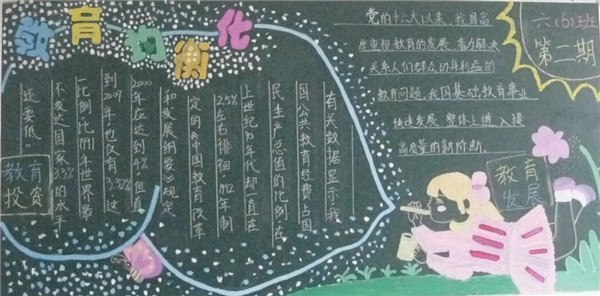 教育均衡化
有关数据显示我
国公共教育经费占国
民生产总值的比例在
上世纪90年代却一直在
2.5%左右徘徊 1992年制
定的《中国教育改革
和发展纲要》规定
2000年应达到4%但直
到2001年也仅有3.32%这
一比例比1991年世界最
不发达国家3.3%的水平
还要低。
教育
投资
党的十六大以来,我国高
度重视教育的发展,着力解决
关系人们群众切身利益的
教育问题,我国基础教育事业
快速发展,整体上进入提
高质量的新阶段.
六(6)班
第二期
教育
发展